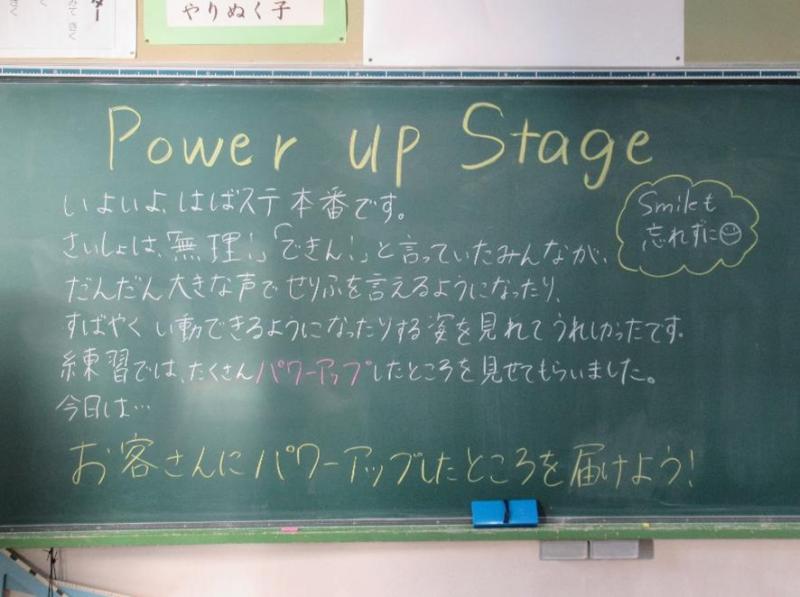 やりぬく子
Power up Stage
いよいよ、はばステ本番です。
さいしょは、「無理!」「できん!」と言っていたみんなが、
だんだん大きな声でせりふを言えるようになったり、
すばやくい動できるようになったりする姿を見れてうれしかったです。
練習では、たくさんパワーアップしたところを見せてもらいました。
今日は…
お客さんにパワーアップしたところを届けよう!
Smileも
忘れずに☺